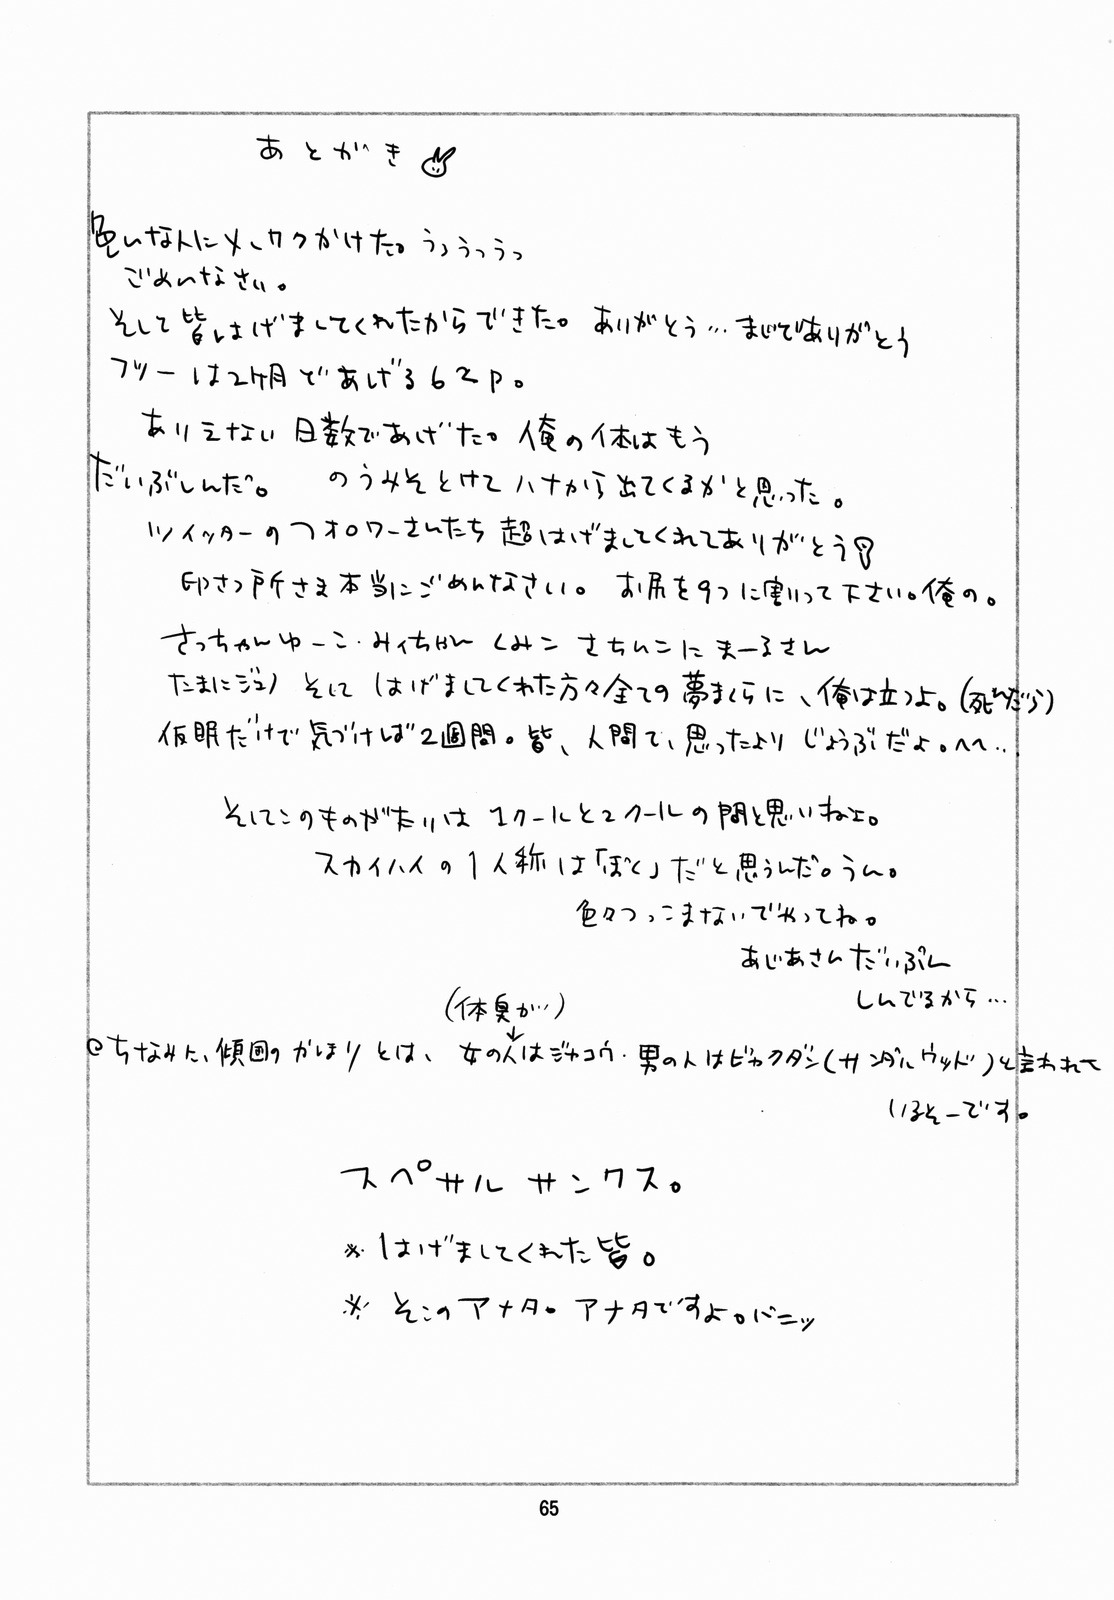 あとがき
色んな人にメーワクかけた。うっうっうっ
ごめんなさい。
そして皆はげましてくれたからできた。ありがとう…まじでありがとう
フツーは2ヶ月であげる62p。
ありえない日数であげた。俺の体はもう
だいぶしんだ。 のうみそとけてハナから出てくるかと思った。
ツイッターのフォロワーさんたち超はげましてくれてありがとう!
印さつ所さま本当にごめんなさい。 お尻を9つに割って下さい。俺の。
さっちゃんゆーこ・みィちゃん くみこ さちいこに まーるさん
たまにジュノ そして はげましてくれた方々全ての夢まくらに、俺は立つよ。(死んだら)
仮眠だけで気づけば2週間。皆、人間て、思ったより じょうぶだよ。へへ…
そしてこのものがたりは 1クールと2クールの間と思いねェ。
スカイハイの1人称は「ぼく」だと思うんだ。うん。
色々つっこまないでやってね。
あじあさんだいぶん
しんでるから…
(体臭が…)
@ちなみに、傾国のかほりとは、女の人はジャコウ・男の人はビャクダン(サンダルウッド)と言われて
いるそーです。
スペサルサンクス。
※はげましてくれた皆。
※そこのアナタ。アナタですよ。バニッ
65